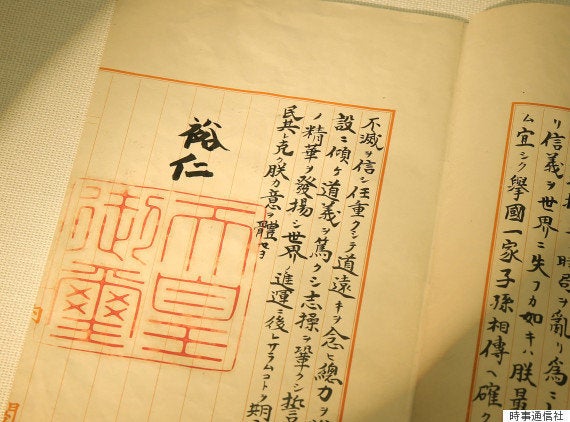 時局ヲ亂リ爲ニ
リ信義ヲ世界ニ失フカ如キハ朕最
ム宜シク擧國一家子孫相傳ヘ確ク
不滅ヲ信シ任重クシテ道遠キヲ念ヒ總力ヲ
設ニ傾ケ道義ヲ篤クシ志操ヲ鞏クシ誓
ノ精華ヲ發揚シ世界ノ進運ニ後レサラムコトヲ期
民其レ克ク朕カ意ヲ體セヨ
裕仁
天皇
御璽
時事通信社